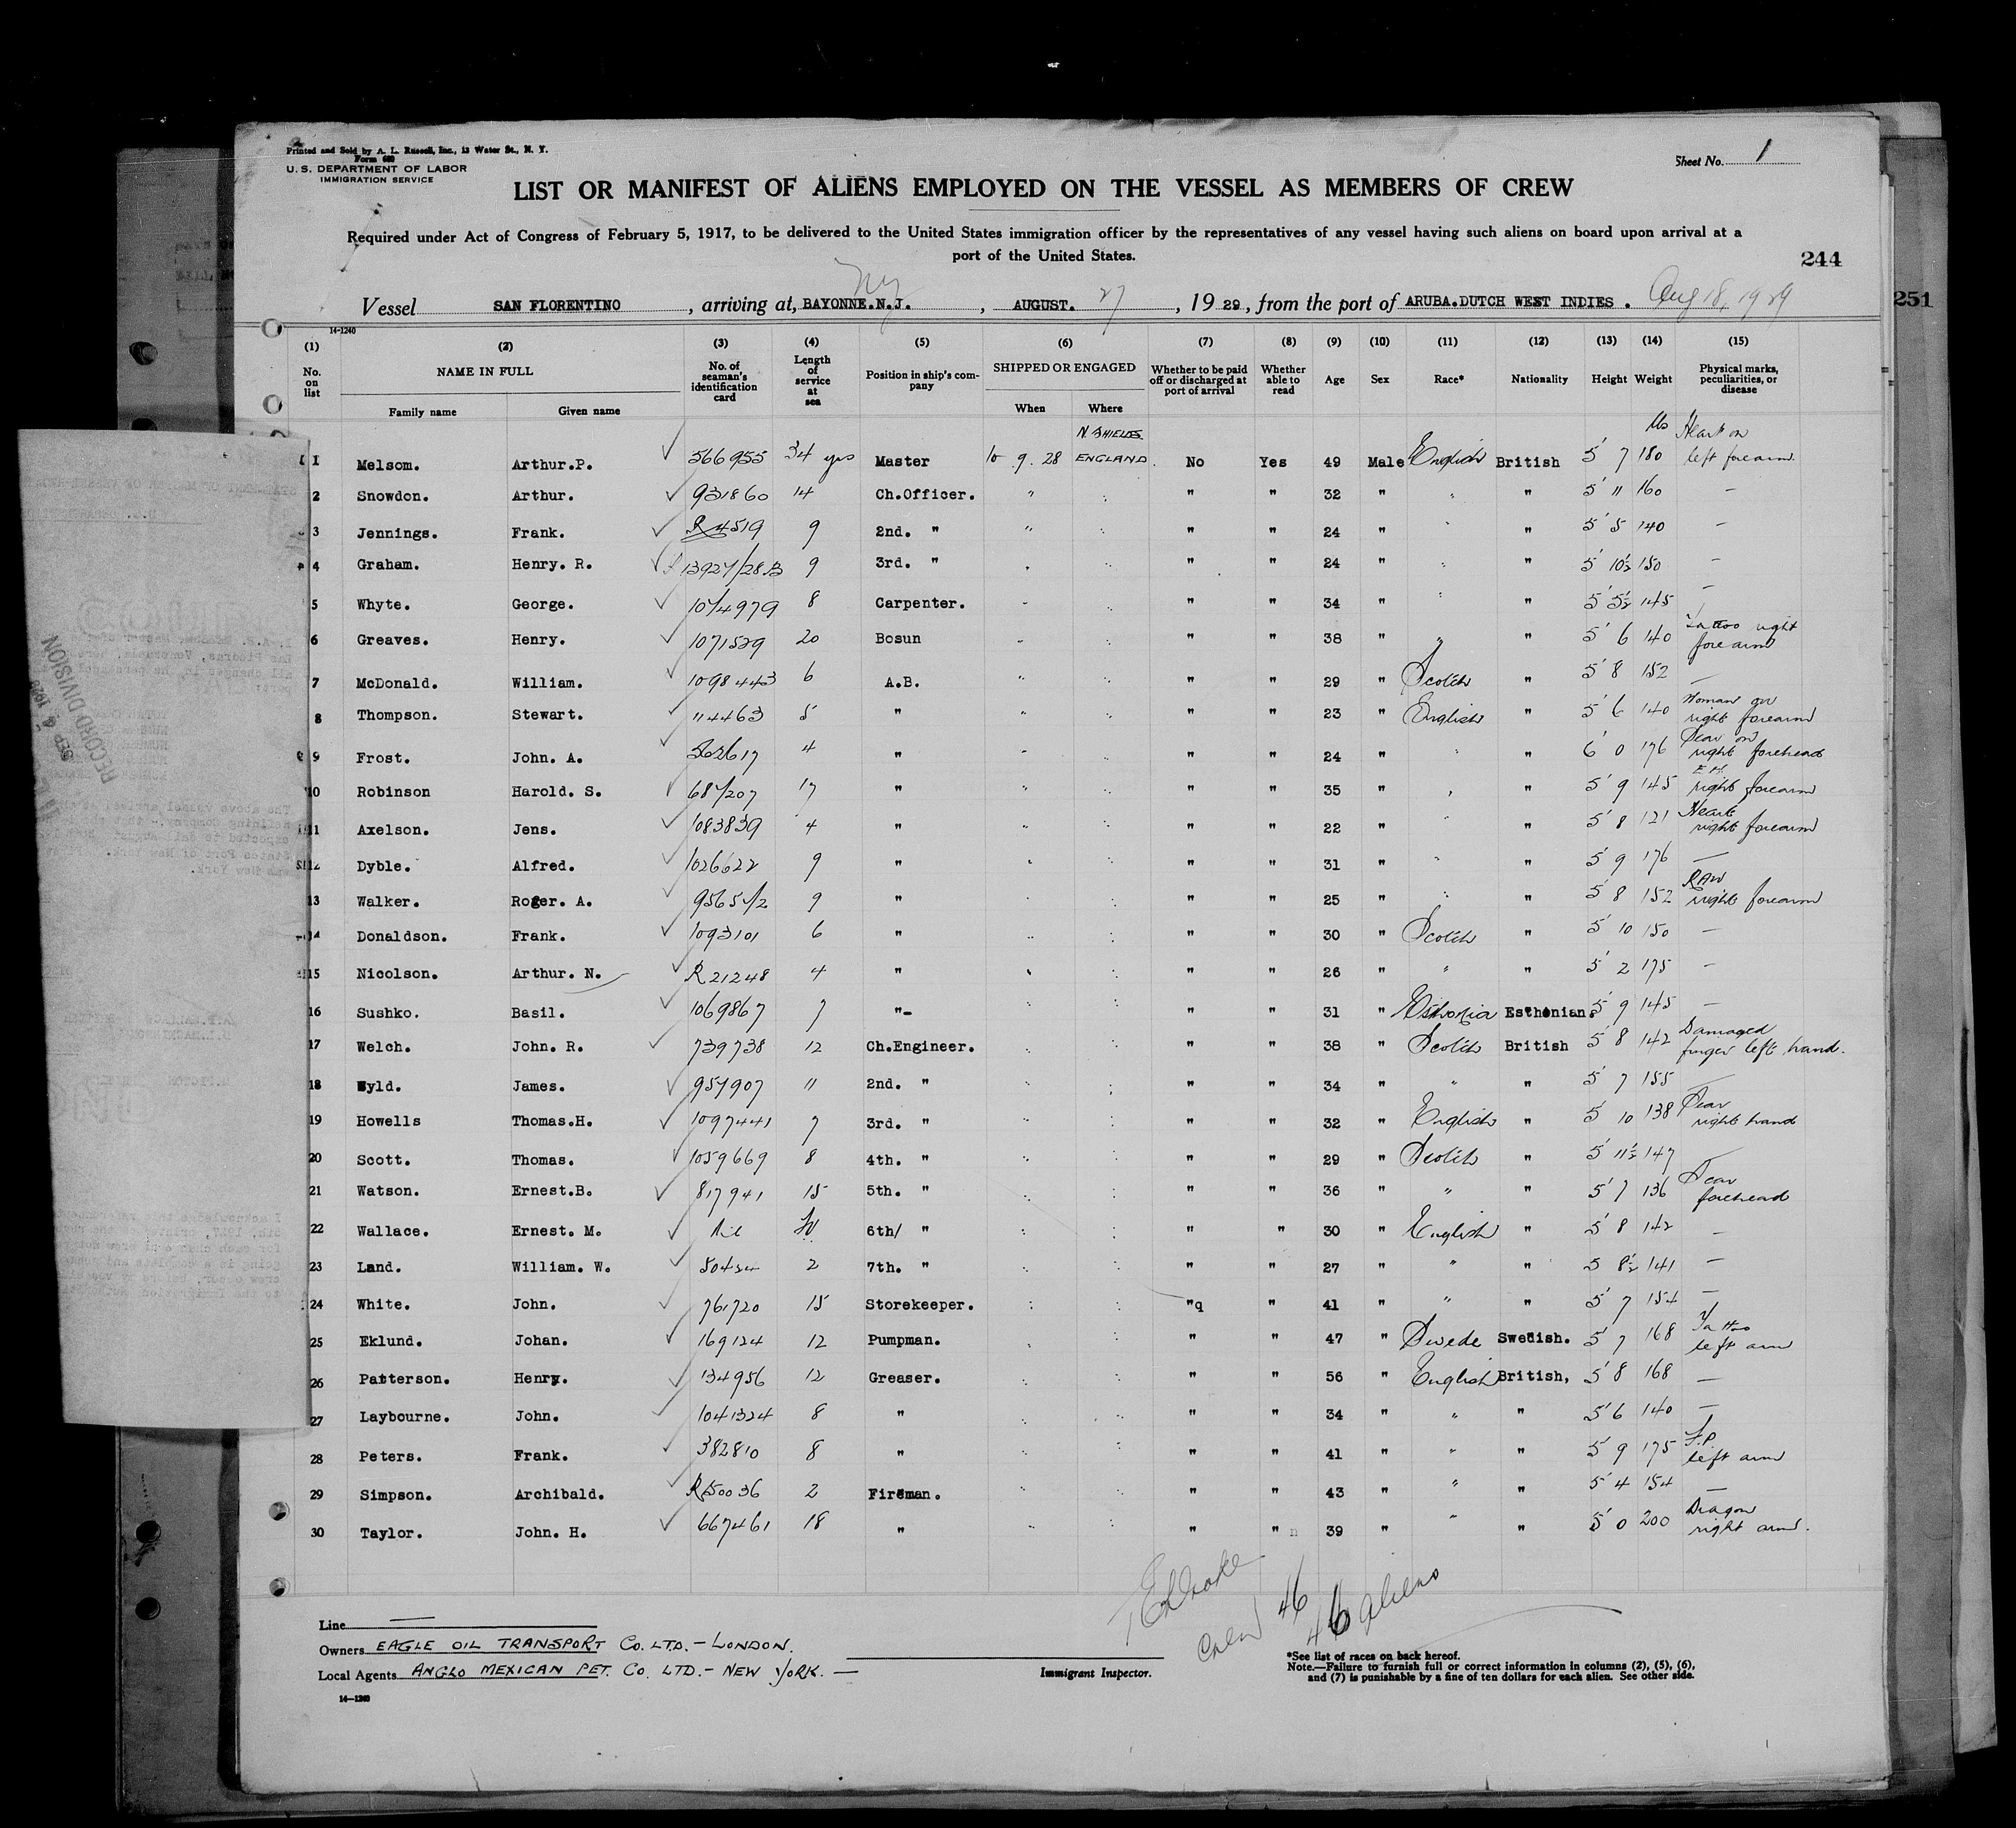 Printed and Sold by A. L. Russell, Inc., 13 Water St., N. Y.
Form 680
U. S. DEPARTMENT OF LABOR
IMMIGRATION SERVICE
Sheet No. 1
LIST OR MANIFEST OF ALIENS EMPLOYED ON THE VESSEL AS MEMBERS OF CREW
Required under Act of Congress of February 5, 1917, to be delivered to the United States immigration officer by the representatives of any vessel having such aliens on board upon arrival at a
port of the United States.
244
251
NY
Vessel SAN FLORENTINO , arriving at, BAYONNE.N.J. , AUGUST. 27 , 19 29 , from the port of ARUBA.DUTCH WEST INDIES . Aug 18, 1929
14-1240
(1) (2) (3) (4) (5) (6) (7) (8) (9) (10) (11) (12) (13) (14) (15)
No. on list NAME IN FULL No. of seaman's identification card Length of service at sea Position in ship's company SHIPPED OR ENGAGED Whether to be paid off or discharged at port of arrival Whether able to read Age Sex Race* Nationality Height Weight Physical marks, peculiarities, or disease
Family name Given name When Where
N. SHIELDS. lbs Heart on
1 Melsom. Arthur.P. 566955 34 yrs Master 10 9. 28 ENGLAND. No Yes 49 Male English British 5' 7 180 left forearm.
2 Snowdon. Arthur. 931860 14 Ch.Officer. " " " " 32 " " " 5' 11 160 —
3 Jennings. Frank. R4519 9 2nd. " " " " " 24 " " " 5' 5 140 —
4 Graham. Henry. R. 13927/28.B 9 3rd. " " " " " 24 " " " 5' 10½ 150 —
5 Whyte. George. 1074979 8 Carpenter. " " " " 34 " " " 5' 5½ 145 —
6 Greaves. Henry. 1071529 20 Bosun " " " " 38 " " " 5' 6 140 Tattoo right forearm
7 McDonald. William. 1098443 6 A.B. " " " " 29 " Scotch " 5' 8 152 —
8 Thompson. Stewart. 114463 5 " " " " " 23 " English " 5' 6 140 Woman on right forearm
9 Frost. John. A. 562617 4 " " " " " 24 " " " 6' 0 176 Scar on right forehead
10 Robinson Harold. S. 687207 17 " " " " " 35 " " " 5' 9 145 right forearm
11 Axelson. Jens. 1083839 4 " " " " " 22 " " " 5' 8 121 Heart right forearm
12 Dyble. Alfred. 1026622 9 " " " " " 31 " " " 5' 9 176 —
13 Walker. Roger. A. 956572 9 " " " " " 25 " " " 5' 8 152 RAW right forearm
14 Donaldson. Frank. 1093101 6 " " " " " 30 " Scotch " 5' 10 150 —
15 Nicolson. Arthur. N. R21248 4 " " " " " 26 " " " 5' 2 175 —
16 Sushko. Basil. 1069867 7 "- " " " " 31 " Esthonia Esthonian. 5' 9 145 —
17 Welch. John. R. 739738 12 Ch.Engineer. " " " " 38 " Scotch British 5' 8 142 Damaged finger left hand.
18 Wyld. James. 957907 11 2nd. " " " " " 34 " " " 5' 7 155 —
19 Howells Thomas.H. 1097441 7 3rd. " " " " " 32 " English " 5' 10 138 Scar right hand
20 Scott. Thomas. 1059669 8 4th. " " " " " 29 " Scotch " 5' 11½ 147 —
21 Watson. Ernest.B. 817941 15 5th. " " " " " 36 " " " 5' 7 136 Scar forehead
22 Wallace. Ernest. M. Nil 6th/ " " " " " 30 " English " 5' 8 142 —
23 Land. William. W. 50424 2 7th. " " " " " 27 " " " 5 8½ 141 —
24 White. John. 761720 15 Storekeeper. " " "q " 41 " " " 5' 7 154 —
25 Eklund. Johan. 169124 12 Pumpman. " " " 47 " Swede Swedish. 5' 7 168 Tattoo left arm
26 Patterson. Henry. 134956 12 Greaser. " " " " 56 " English British, 5' 8 168 —
27 Laybourne. John. 1041324 8 " " " " " 34 " " " 5' 6 140 —
28 Peters. Frank. 382810 8 " " " " " 41 " " " 5' 9 175 F.P. left arm
29 Simpson. Archibald. R50036 2 Fireman. " " " " 43 " " " 5' 4 154 —
30 Taylor. John. H. 667461 18 " " " " " n 39 " " " 5' 0 200 Dragon right arm.
Crew 46
46 aliens
Line —
Owners EAGLE OIL TRANSPORT CO. LTD. - LONDON.
Local Agents ANGLO MEXICAN PET. CO. LTD. - NEW YORK. —
Immigrant Inspector.
*See list of races on back hereof.
Note.—Failure to furnish full or correct information in columns (2), (5), (6),
and (7) is punishable by a fine of ten dollars for each alien. See other side.
14—1240
RECORD DIVISION